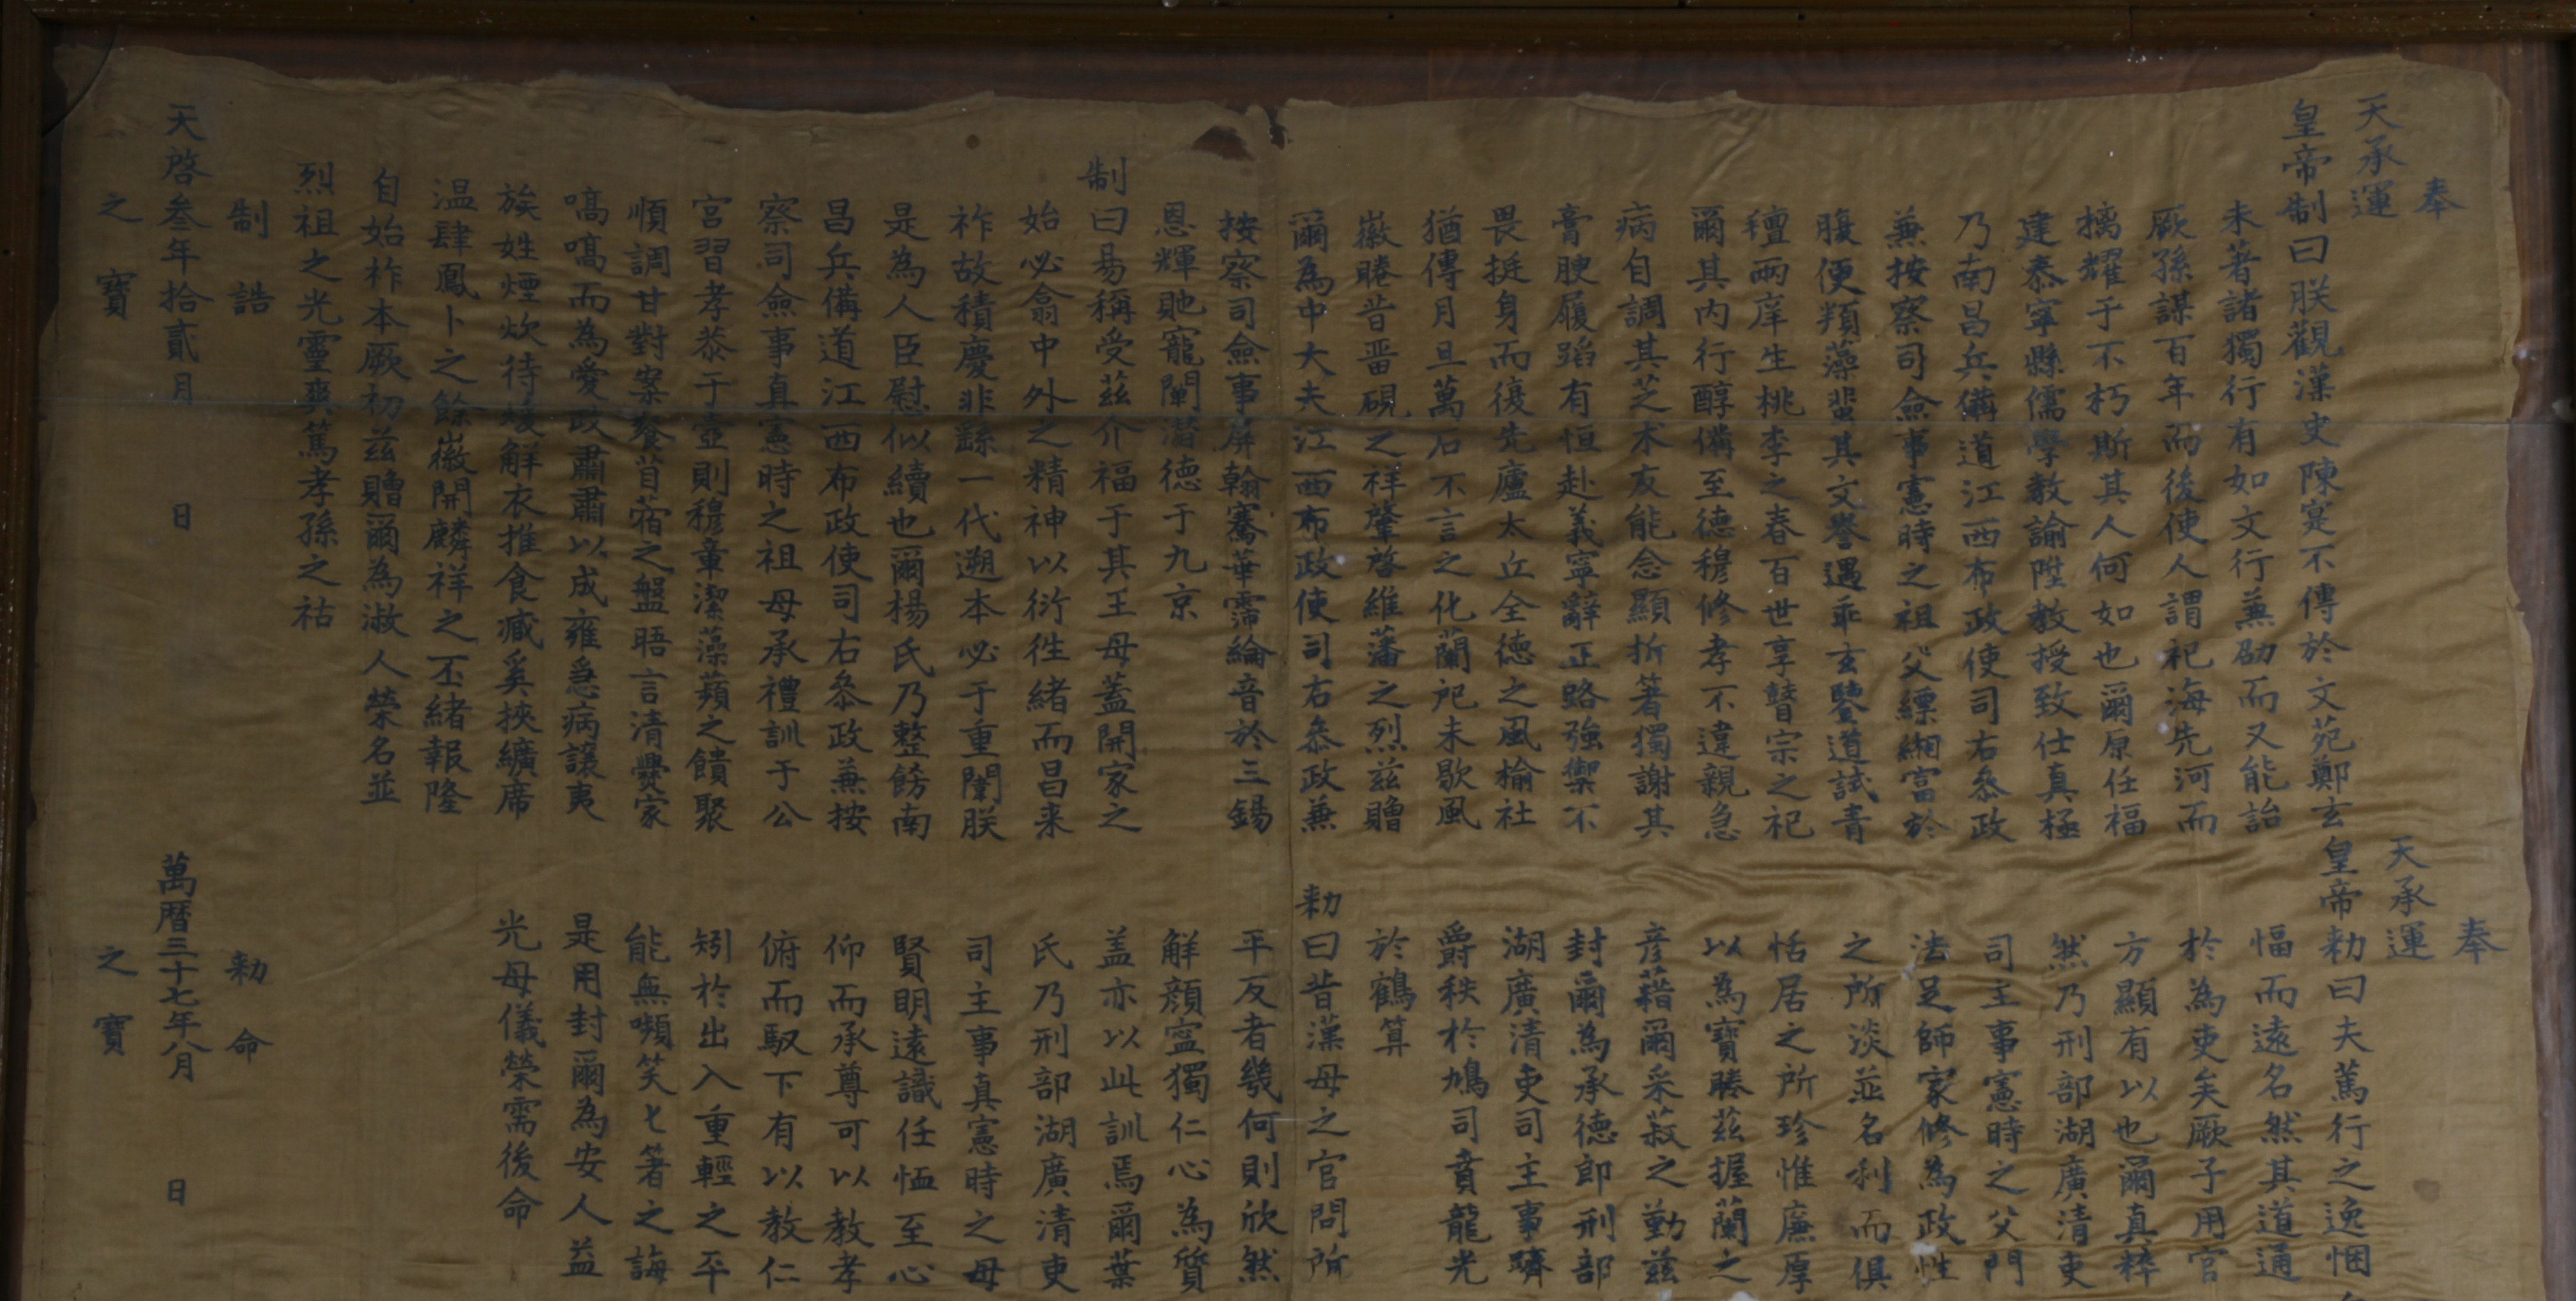 奉
天承運
皇帝制曰朕觀漢史陳寔不傳於文苑鄭玄
未著諸獨行有如文行兼劭而又能詒
厥孫謀百年而後使人謂祀海先河而
摛耀于不朽斯其人何如也爾原任福
建泰寧縣儒學教諭陞教授致仕真極
乃南昌兵備道江西布政使司右叅政
兼按察司僉事憲時之祖父縹緗富於
腹便頖藻蜚其文譽遇乖玄鑒道試青
氊兩庠生桃李之春百世享瞽宗之祀
爾其內行醇備至德穆修孝不違親急
病自調其芝朮友能念顯折箸獨謝其
膏腴履蹈有恒赴義寧辭正路強禦不
畏挺身而後先廬太丘全德之風榆社
猶傳月旦萬石不言之化蘭阤未歇風
徽睠昔畱硯之祥肇啓維藩之烈茲贈
爾為中大夫江西布政使司右叅政兼
按察司僉事屏翰騫華霈綸音於三錫
恩輝貤寵闡潛德于九京
制曰易稱受茲介福于其王母蓋開家之
始必翕中外之精神以衍徃緒而昌來
祚故積慶非繇一代遡本必于重闈朕
是為人臣慰似續也爾楊氏乃整飭南
昌兵備道江西布政使司右叅政兼按
察司僉事真憲時之祖母承禮訓于公
宮習孝恭于壼則穆章潔藻蘋之饋聚
順調甘對案餐苜蓿之盤晤言清爨家
嗃嗃而為愛政肅肅以成雍急病讓夷
族姓煙炊待煖解衣推食臧奚挾纊席
温肆鳳卜之餘徽開麟祥之丕緒報隆
自始祚本厥初茲贈爾為淑人榮名並
烈祖之光靈爽篤孝孫之祜
制誥
天啓叁年拾貳月　日
之寶
奉
天承運
皇帝勑曰夫篤行之逸悃
愊而遠名然其道通
於為吏矣厥子用官
方顯有以也爾真粹
然乃刑部湖廣清吏
司主事憲時之父門
法足師家修為政性
之所淡並名利而俱
恬居之所珍惟廉厚
以為寶賸茲握蘭之
彥藉爾采菽之勤茲
封爾為承德郎刑部
湖廣清吏司主事躋
爵秩於鳩司賁龍光
於鶴算
勑曰昔漢母之官問所
平反者幾何則欣然
觧顔寍獨仁心為質
盖亦以此訓焉爾葉
氏乃刑部湖廣清吏
司主事真憲時之母
賢明遠識任恤至心
仰而承尊可以教孝
俯而馭下有以教仁
矧於出入重輕之平
能無嚬笑匕箸之誨
是用封爾為安人益
光母儀榮需後命
勑命
萬曆三十七年八月　日
之寶